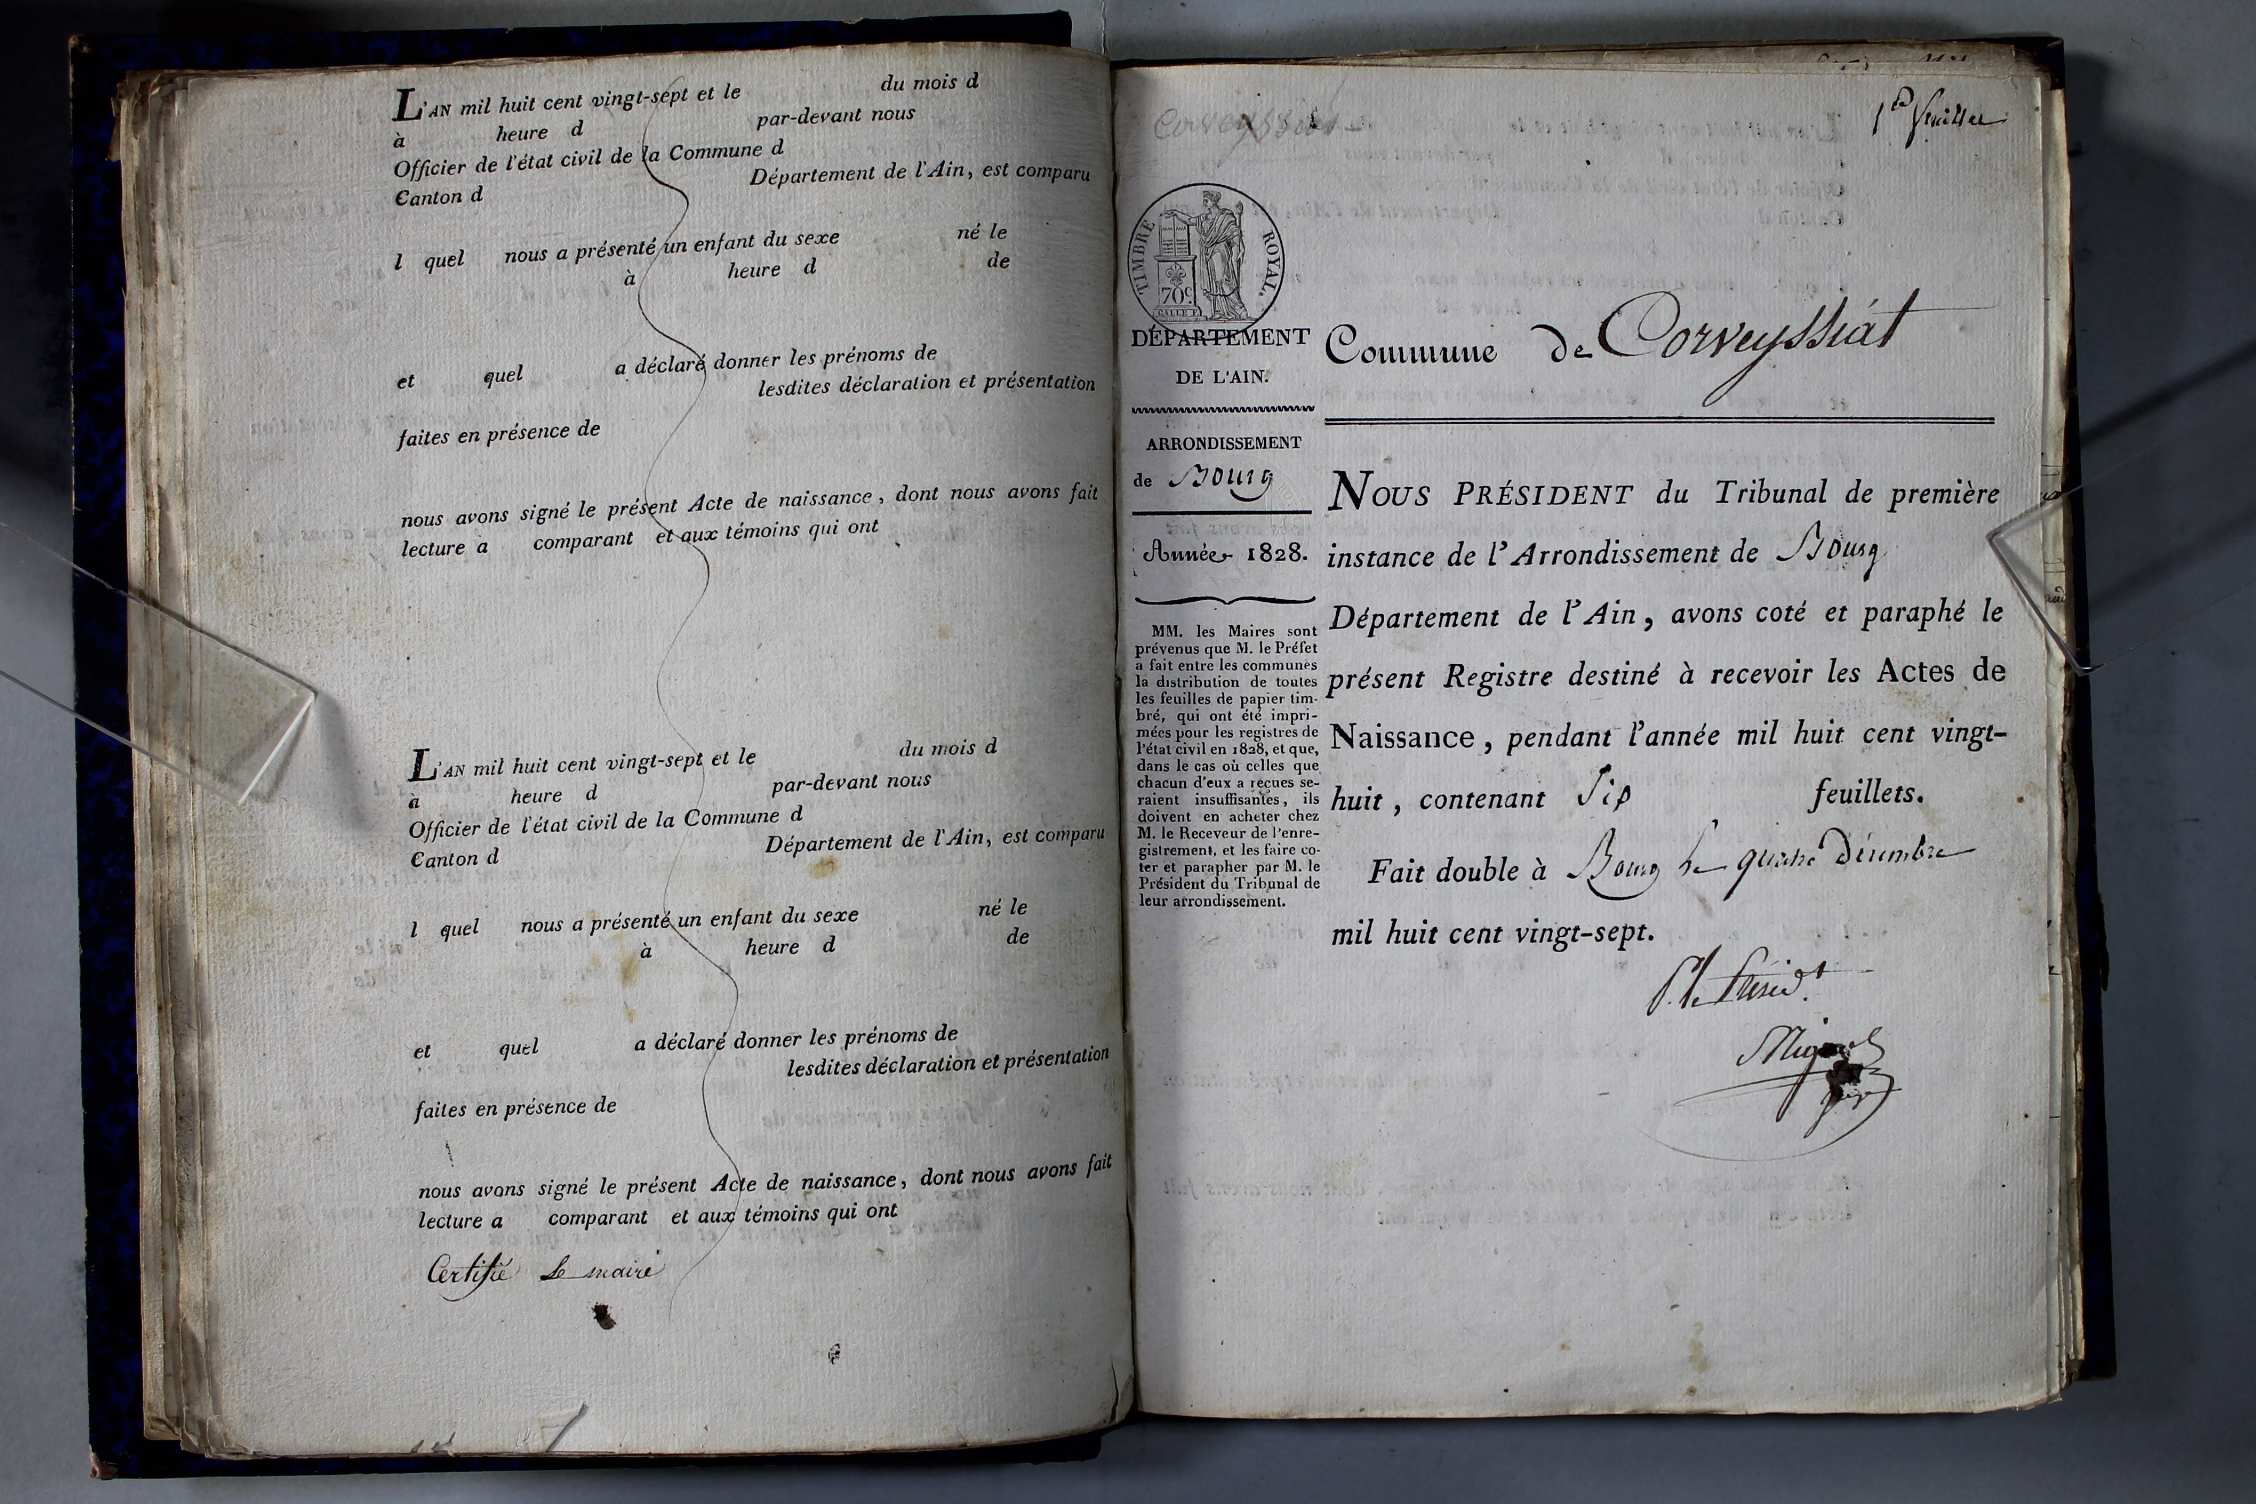 L'AN mil huit cent vingt-sept et le du mois d
à heure d par-devant nous
Officier de l'état civil de la Commune d
Canton d Département de l'Ain, est comparu
l quel nous a présenté un enfant du sexe né le
à heure d de
et quel a déclaré donner les prénoms de
lesdites déclaration et présentation
faites en présence de
nous avons signé le présent Acte de naissance, dont nous avons fait
lecture a comparant et aux témoins qui ont
L'AN mil huit cent vingt-sept et le du mois d
à heure d par-devant nous
Officier de l'état civil de la Commune d
Canton d Département de l'Ain, est comparu
l quel nous a présenté un enfant du sexe né le
à heure d de
et quel a déclaré donner les prénoms de
lesdites déclaration et présentation
faites en présence de
nous avons signé le présent Acte de naissance, dont nous avons fait
lecture a comparant et aux témoins qui ont
Certifié le maire
1er feuillet
TIMBRE ROYAL.
70c
DÉPARTEMENT
DE L'AIN.
ARRONDISSEMENT
de Bourg
Année 1828.
MM. les Maires sont
prévenus que M. le Préfet
a fait entre les communes
la distribution de toutes
les feuilles de papier tim-
bré, qui ont été impri-
mées pour les registres de
l'état civil en 1828, et que,
dans le cas où celles que
chacun d'eux a reçues se-
raient insuffisantes, ils
doivent en acheter chez
M. le Receveur de l'enre-
gistrement, et les faire co-
ter et parapher par M. le
Président du Tribunal de
leur arrondissement.
Commune de Corveyssiat
NOUS PRÉSIDENT du Tribunal de première
instance de l'Arrondissement de Bourg
Département de l'Ain, avons coté et paraphé le
présent Registre destiné à recevoir les Actes de
Naissance, pendant l'année mil huit cent vingt-
huit, contenant Six feuillets.
Fait double à Bourg le quatre Décembre
mil huit cent vingt-sept.
P. le Présidt.